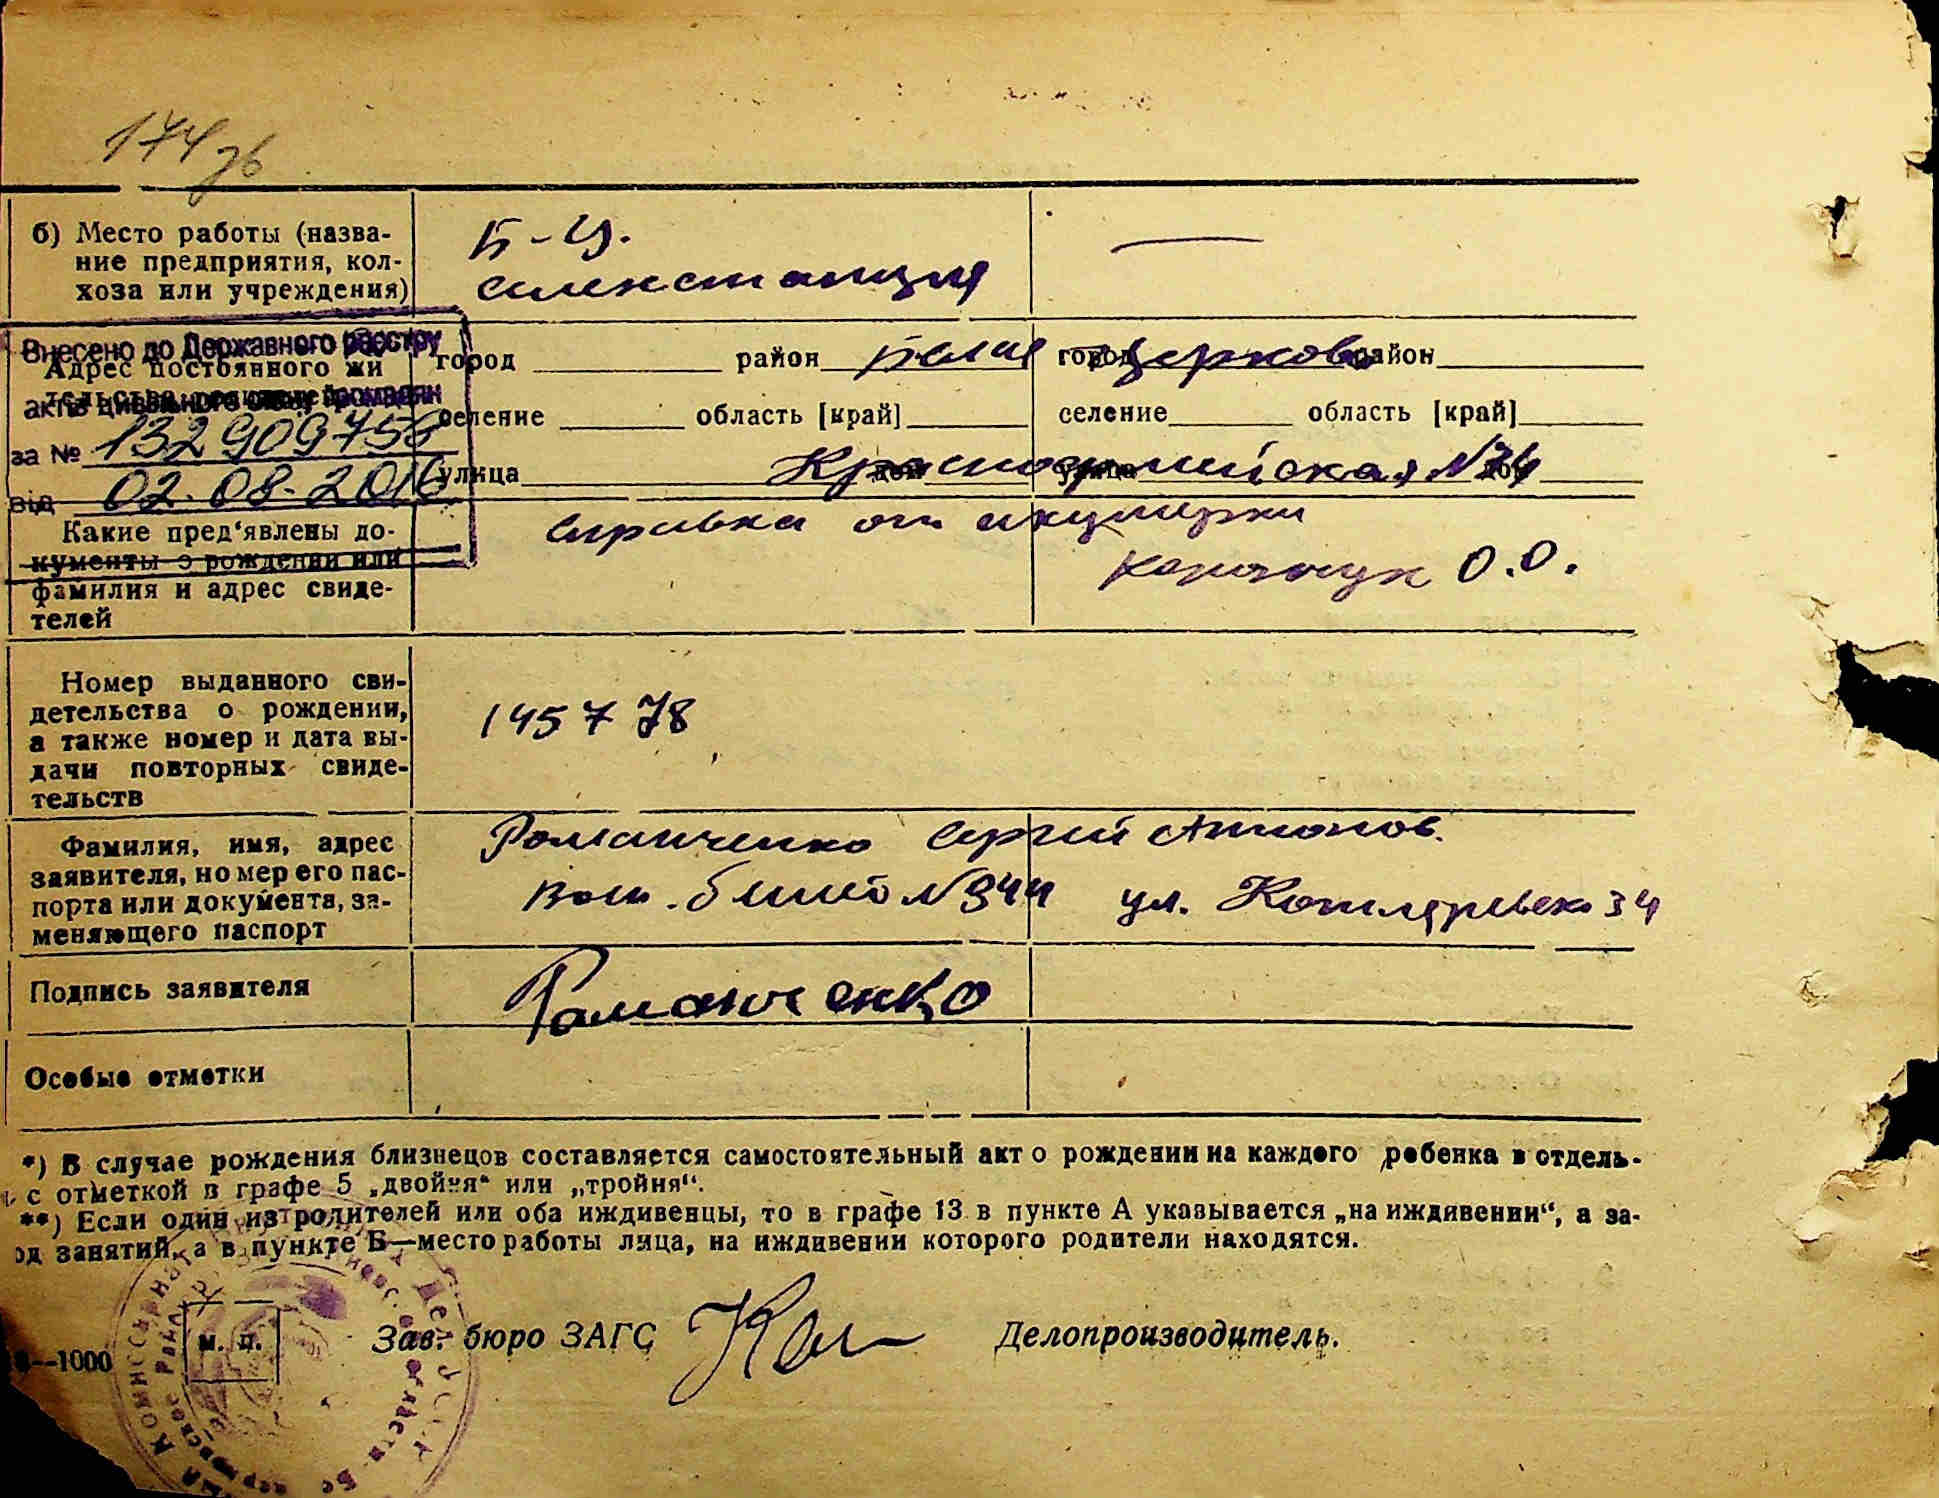 174 зв
б) Место работы (назва-
ние предприятия, кол-
хоза или учреждения)
Б-Ц.
селекстанция
—
Внесено до Державного реєстру
актів цивільного стану громадян
за № 132909756
від 02.08.2016
Адрес постоянного жи
тельства родителей
город район Белая Церковь город район
селение область [край] селение область [край]
улица дом Красноармейская №34 улица дом
Какие пред'явлены до-
кументы о рождении или
фамилия и адрес свиде-
телей
Справка от акушерки
О.О.
Номер выданного сви-
детельства о рождении,
а также номер и дата вы-
дачи повторных свиде-
тельств
145778
Фамилия, имя, адрес
заявителя, номер его пас-
порта или документа, за-
меняющего паспорт
Романченко Сергей Антонов.
Воен. билет №944 ул. 34
Подпись заявителя
Романченко
Особые отметки
*) В случае рождения близнецов составляется самостоятельный акт о рождении на каждого ребенка в отдель-
с отметкой в графе 5 „двойня“ или „тройня“.
**) Если один из родителей или оба иждивенцы, то в графе 13 в пункте А указывается „на иждивении“, а за-
од занятий, а в пункте Б—место работы лица, на иждивении которого родители находятся.
—1000
м. п.
Зав. бюро ЗАГС
Делопроизводитель.